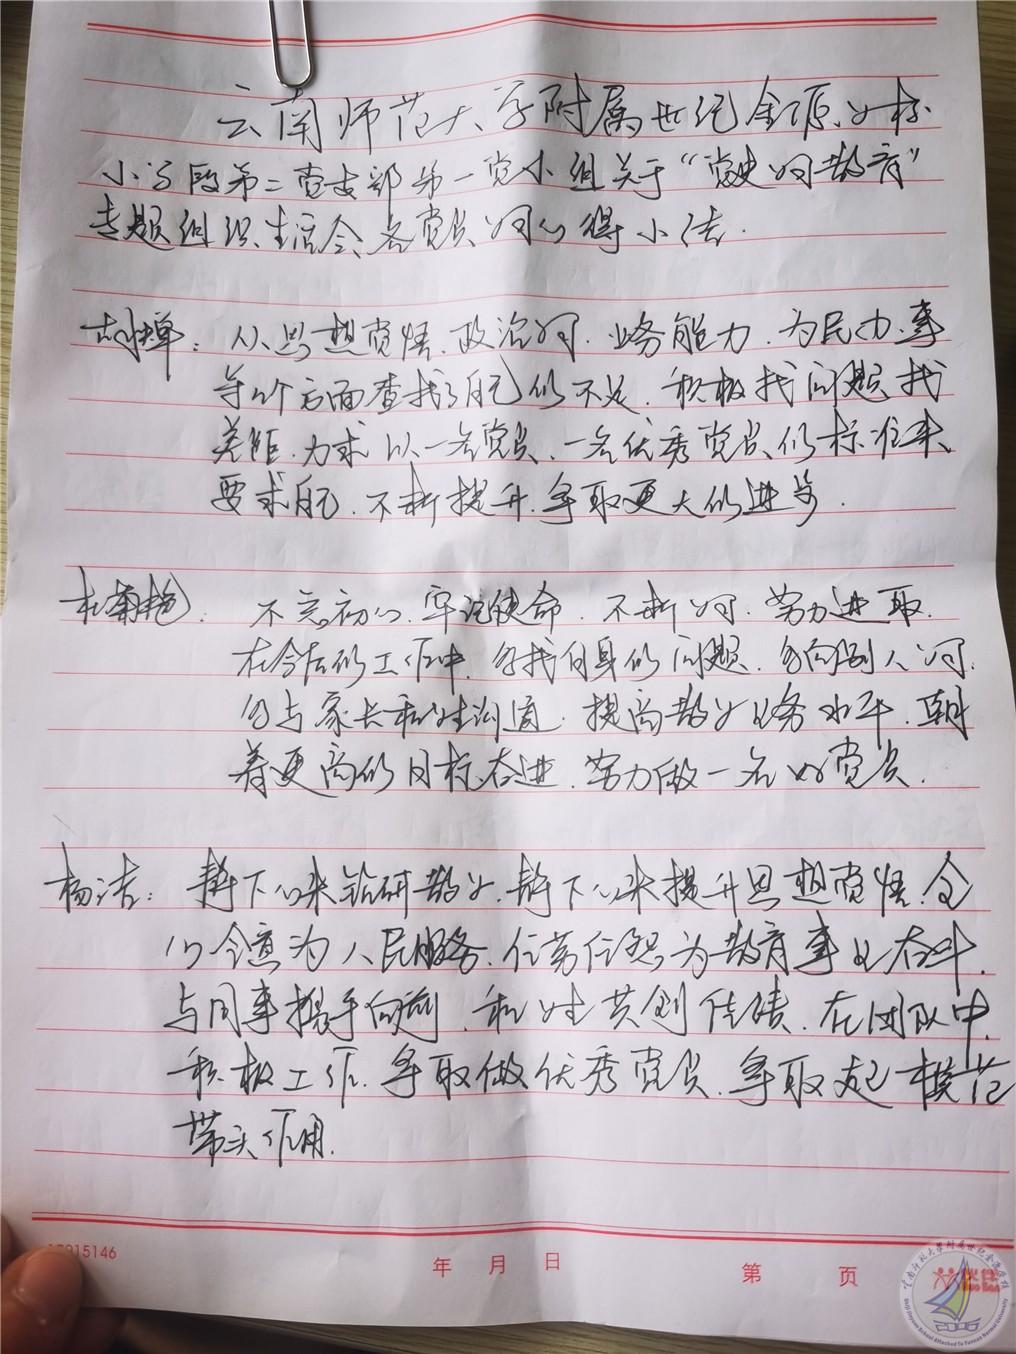 云南师范大学附属世纪金源学校
小学段第二党支部第一党小组关于“党史学习教育”
专题组织生活会各党员学习心得小结.
从思想觉悟、政治学习、业务能力、为民办事
等几个方面查找了自己的不足，积极找问题找
差距，力求以一名党员、一名优秀党员的标准来
要求自己，不断提升，争取更大的进步.
杜菊艳：不忘初心，牢记使命，不断学习，努力进取.
在今后的工作中，多找自身的问题，多向别人学习，
多与家长和学生沟通，提高教学业务水平，朝
着更高的目标奋进，努力做一名好党员.
杨洁：静下心来钻研教学，静下心来提升思想觉悟，全
心全意为人民服务，任劳任怨为教育事业奋斗，
与同事携手向前，和学生共创佳绩，在团队中，
积极工作，争取做优秀党员，争取起模范
带头作用.
15146
年 月 日
第 页
云南师范大学附属世纪金源学校
Shiji Jinyuan School Attached To Yunnan Normal University